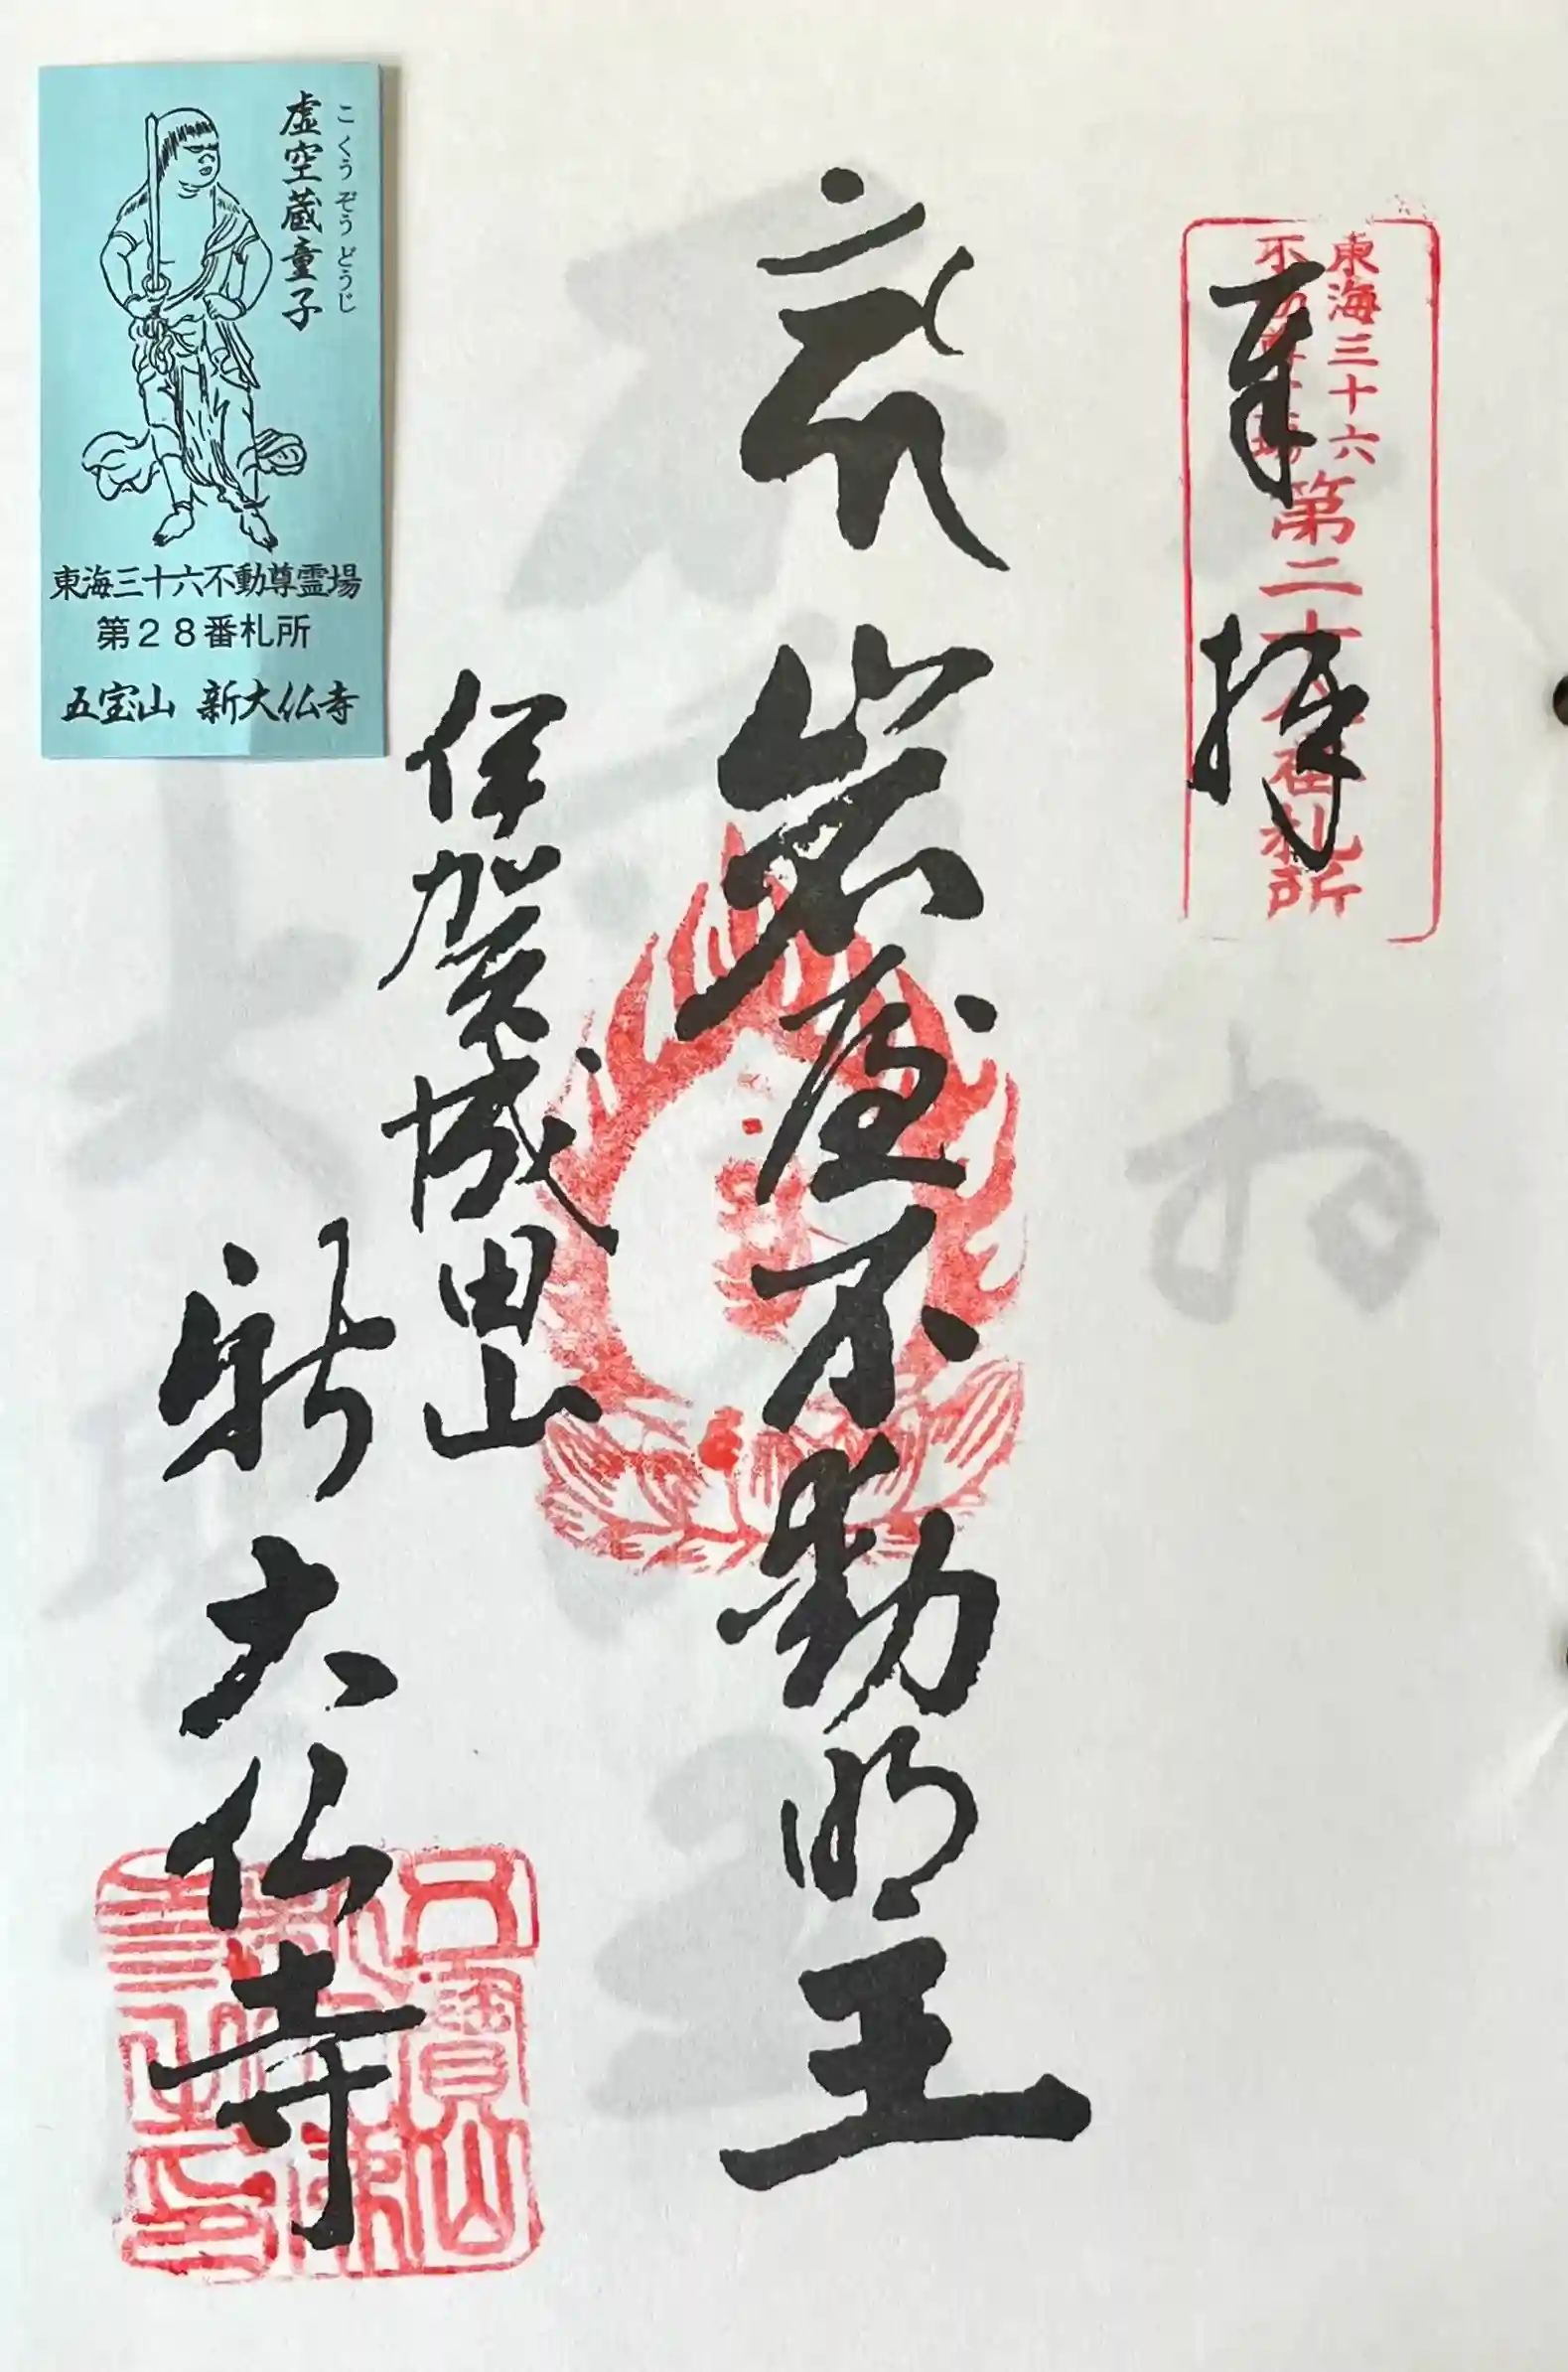 東海三十六
不動尊霊場
第二十八番札所
奉拝
岩屋不動明王
伊賀成田山
新大仏寺
五寶山
虚空蔵童子
こくうぞうどうじ
東海三十六不動尊霊場
第28番札所
五宝山 新大仏寺